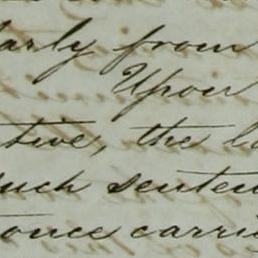 arly from
Upon
tive, the la
such senten
once carrie